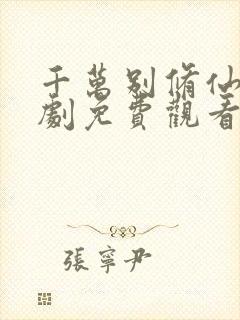 千萬别脩仙
劇免費觀看
張寧尹